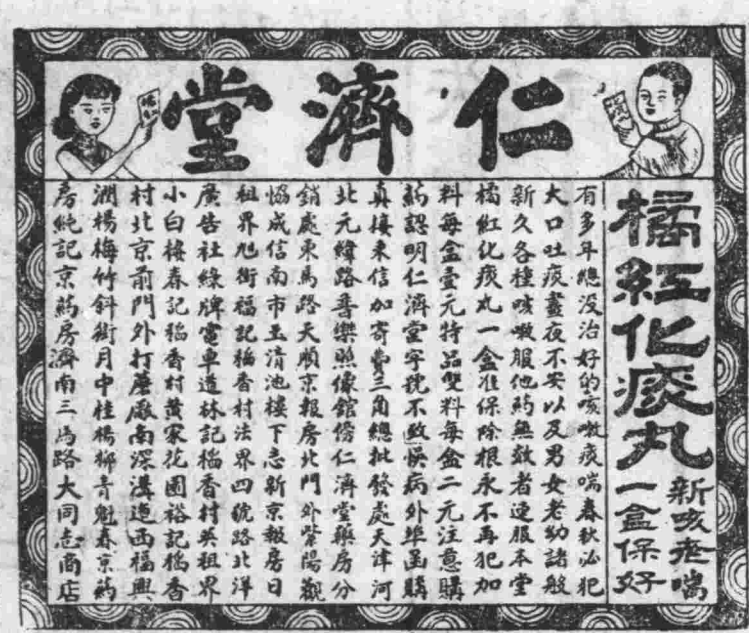 仁濟堂
橘紅化痰丸
新咳痰喘
一盒保好
有多年總没治好的咳嗽痰喘春秋必犯
大口吐痰晝夜不安以及男女老幼諸般
新久各種咳嗽服他药無效者速服本堂
橘紅化痰丸一盒准保除根永不再犯加
料每盒壹元特品雙料每盒二元注意購
药認明仁濟堂字號不致悞病外埠函購
真接来信加寄費三角總批發處天津河
北元緯路普樂照像館傍仁濟堂藥房分
銷處東馬路天順京報房北門外紫陽觀
協成信南市玉清池樓下志新京報房日
租界旭街福記稲香村法界四號路北洋
廣告社綠牌電車道林記稲香村英租界
小白楼春記稲香村黄家花園裕記稲香
村北京前門外打磨廠南深溝通西福興
潤楊梅竹斜街月中桂楊柳青魁春京药
房純記京药房濟南三馬路大同志商店